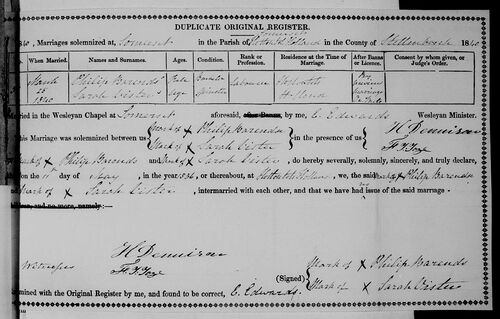 DUPLICATE ORIGINAL REGISTER.
Marriages solemnized at Somerset in the Parish of Somerset Hottentots Holland in the County of Stellenbosch 1840
When Married. Names and Surnames. Ages. Condition. Rank or Profession. Residence at the Time of Marriage. After Banns or Licence. Consent by whom given, or Judge's Order.
March 1840 Philip Barends Sarah Dister Full Age Bachelor Spinster Labourer Holland
Married in the Wesleyan Chapel at Somerset aforesaid, by me, E. Edwards Wesleyan Minister.
This Marriage was solemnized between us Mark of X Philip Barends Mark of X Sarah Dister in the presence of us H Dennison
Mark of X Philip Barends and Mark of X Sarah Dister, do hereby severally, solemnly, sincerely, and truly declare,
on the day of May in the year or thereabout, at Hottentots Holland, we, the said Mark of X Philip Barends
Mark of X Sarah Dister, intermarried with each other, and that we have had no issue of the said marriage
and no more, namely:
Witnesses H Dennison
(Signed) Mark of X Philip Barends
Mark of X Sarah Dister
Examined with the Original Register by me, and found to be correct, E. Edwards.